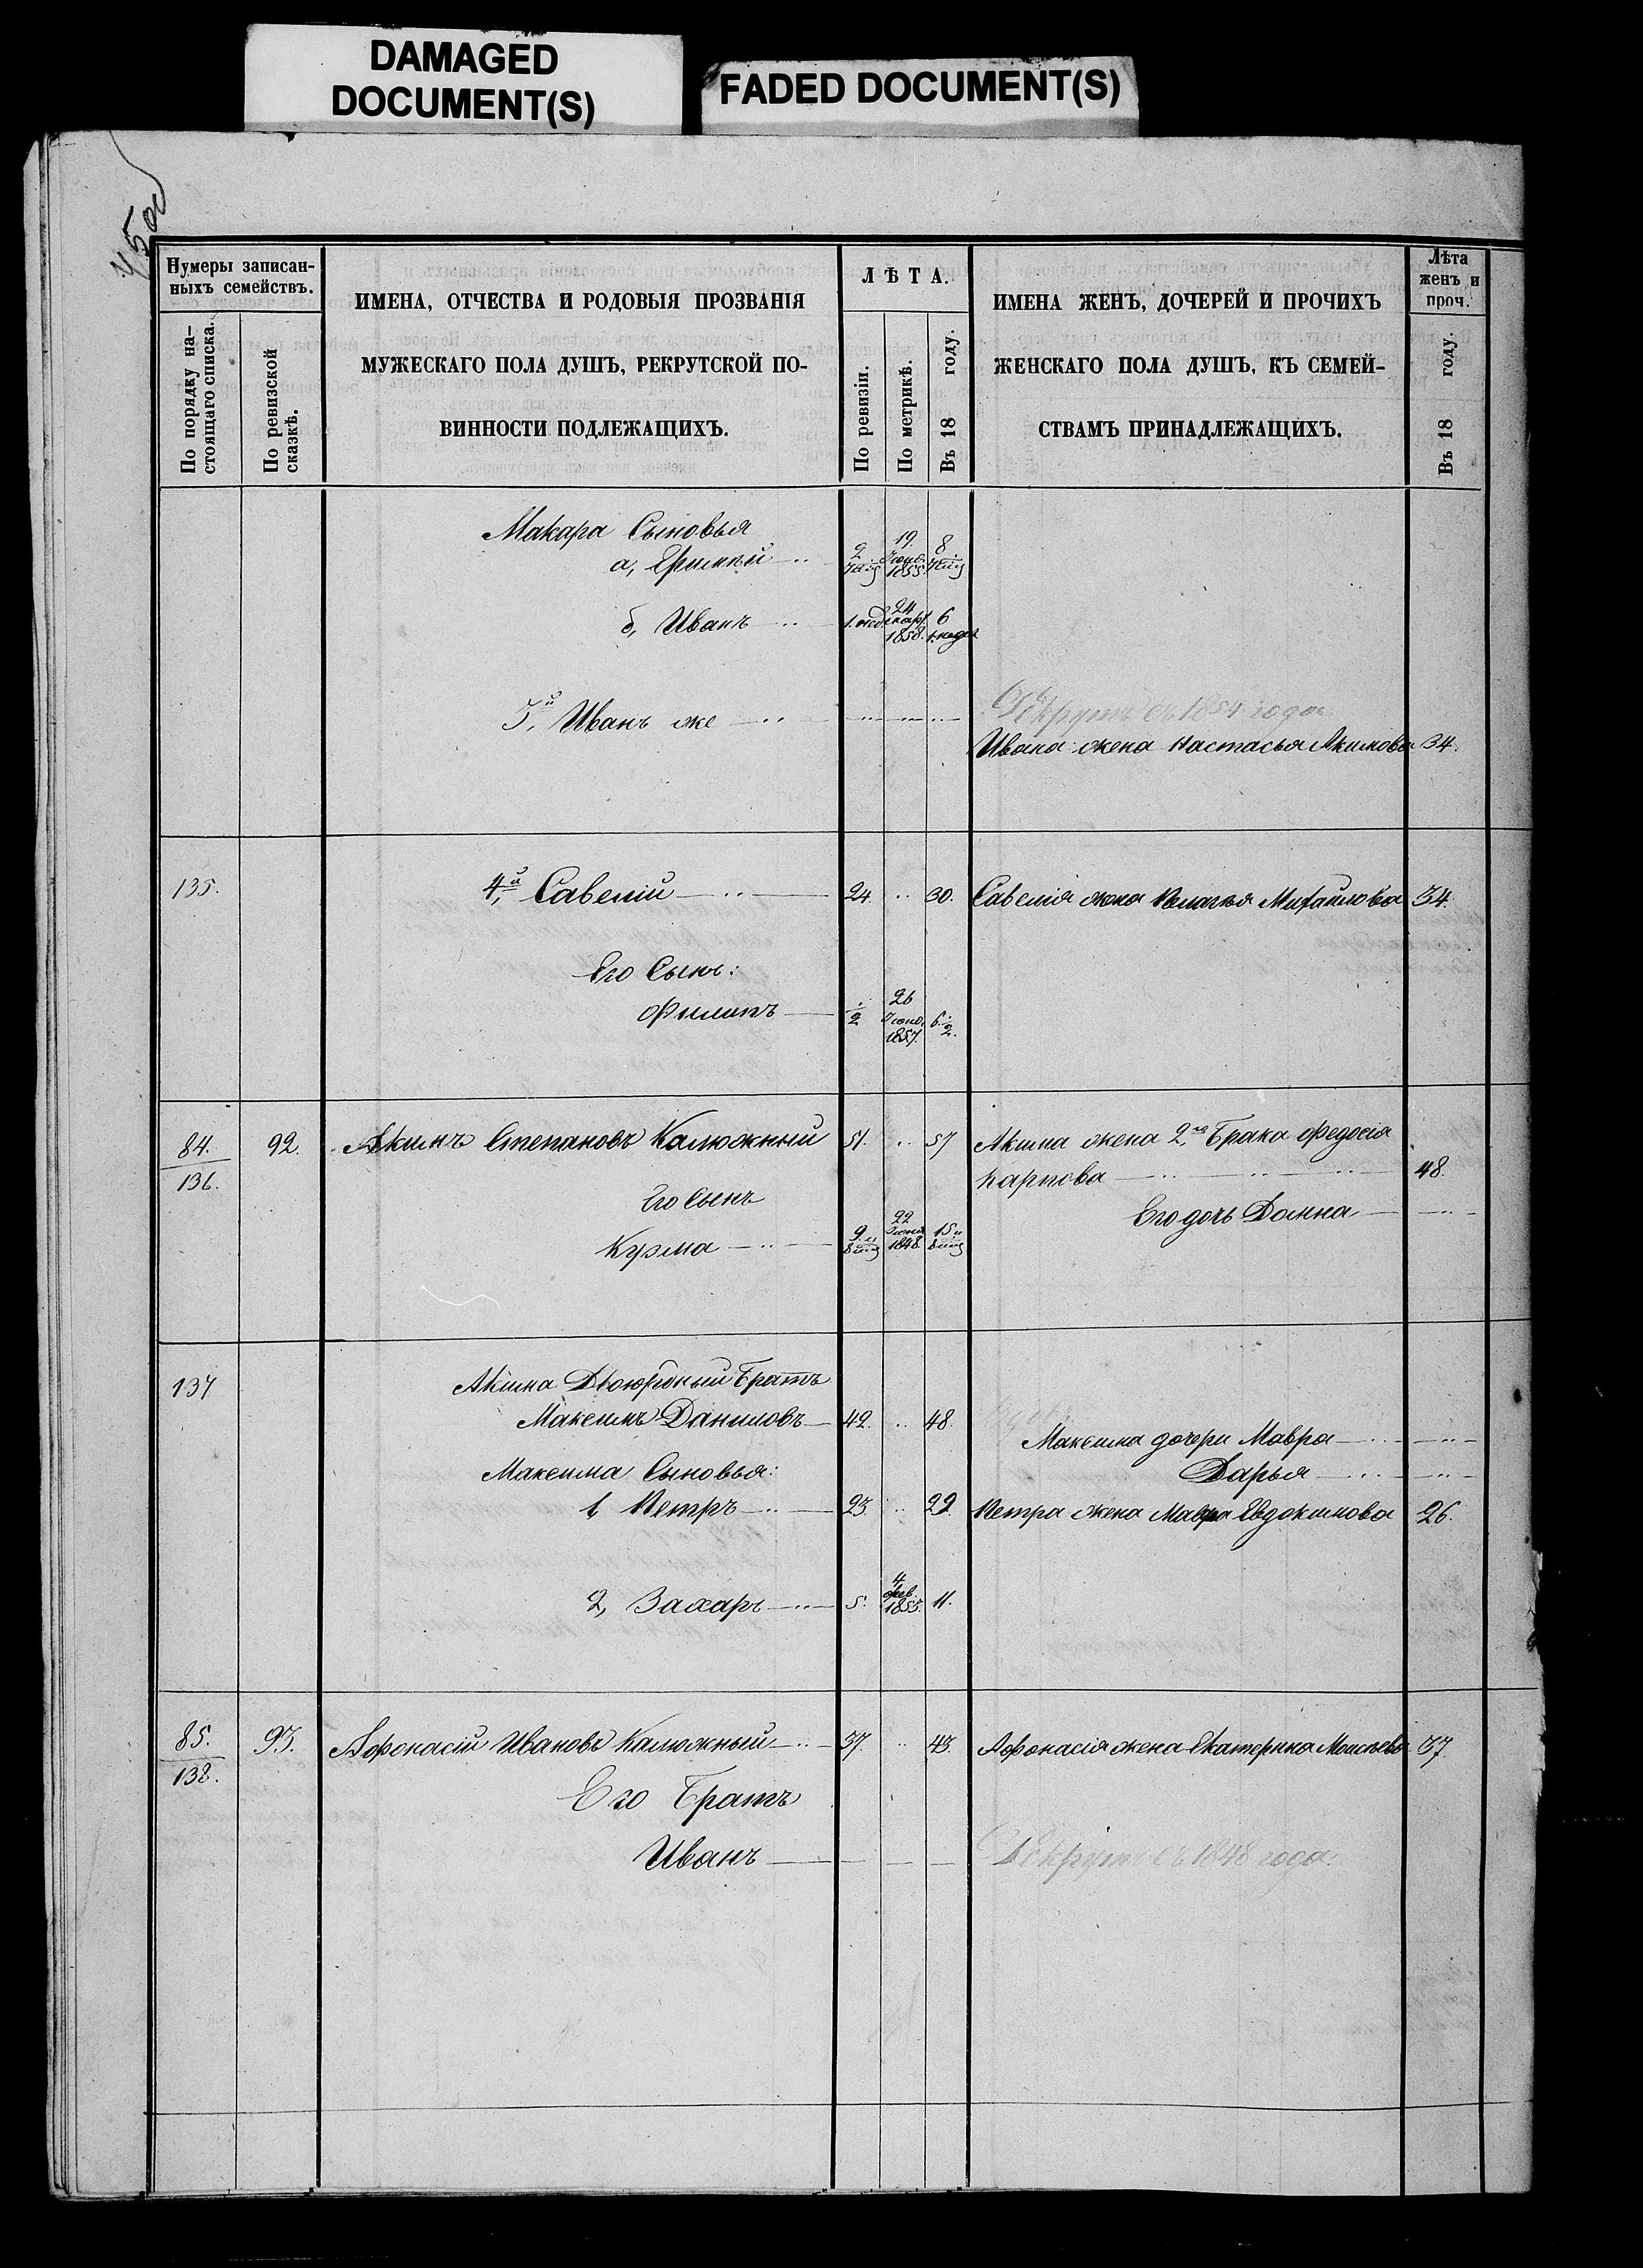 DAMAGED
DOCUMENT(S)
FADED DOCUMENT(S)
Нумеры записан-
ныхъ семействъ.
По порядку на-
стоящаго списка.
По ревизской
сказкѣ.
ИМЕНА, ОТЧЕСТВА И РОДОВЫЯ ПРОЗВАНІЯ
МУЖЕСКАГО ПОЛА ДУШЪ, РЕКРУТСКОЙ ПО-
ВИННОСТИ ПОДЛЕЖАЩИХЪ.
ЛѢТА.
По ревизіи.
По метрикѣ.
Въ 18 году.
ИМЕНА ЖЕНЪ, ДОЧЕРЕЙ И ПРОЧИХЪ
ЖЕНСКАГО ПОЛА ДУШЪ, КЪ СЕМЕЙ-
СТВАМЪ ПРИНАДЛЕЖАЩИХЪ.
Лѣта
женъ и
проч.
Въ 18 году.
Макара Сыновья
а, 2 19 1855 8
б, Иванъ 24 1858. 6
3й, Иванъ же
Рекрутъ съ 1854 года
Ивана жена Настасья Акимова 34.
135. 4й, Савелій 24. 30. Савелія жена Пелагѣя Михайлова 34.
Его Сынъ:
Филипъ 1/2 26 1857. 6 1/2.
84. 92. Акимъ Степановъ Калюжный 51. 57 Акима жена 2го Брака Федосія
136. Карпова 48.
Его Сынъ
Его дочь Домна
Кузма 9 и 8 22 1848 15 и 8
137 Акима Двоюрдный Братъ
Максимъ Даниловъ 42. 48.
Максима дочери Мавра
Максима Сыновья:
Дарья
1, Петръ 23. 29. Петра жена Мавра Евдокимова 26.
2, Захаръ 5. 4 фев. 1853. 11.
85. 93. Афонасій Ивановъ Калюжный 37. 43. Афонасія жена Екатерина Моисѣева 37.
138.
Его Братъ
Иванъ
Рекрутъ съ 1848 года.